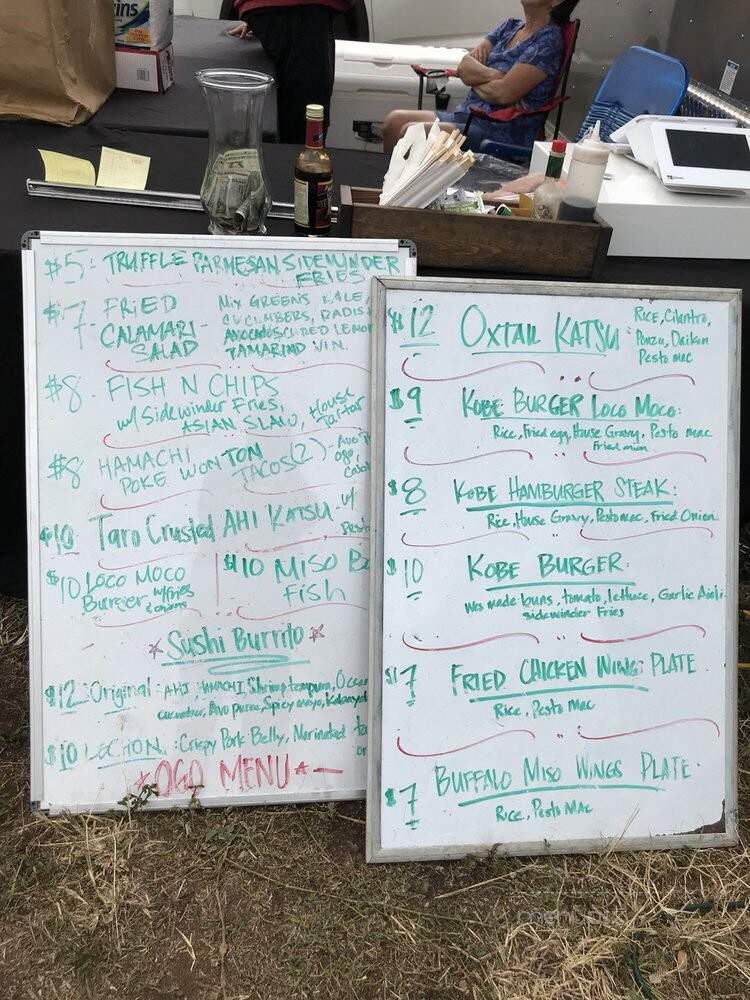 ins
$5- TRUFFLE PARMESAN SIDEWINDER
FRIES
$7 FRIED
CALAMARI-
SALAD
MIX GREENS, KALE,
CUCUMBERS, RADIS
AVOCADO, CURED LEMON
TAMARIND VIN.
$8- FISH N CHIPS
w/ Sidewinder Fries,
ASIAN SLAW, House
Tartar
$8- HAMACHI
POKE WONTON
TACOS (2)-
$10 Taro Crusted AHI KATSU- w/
$10 LOCO MOCO
Burger w/ fries
& onions
$10 MISO B
FISH
*Sushi Burrito*
$12: Original: AHI, HAMACHI, Shrimp tempura, Ocean
cucumber, Avo puree, Spicy mayo, Kabayaki
$10 LECHON: Crispy Pork Belly, Marinated to
*OGO MENU*-
$12 OXTAIL KATSU
Rice, Cilantro,
Ponzu, Daikon
Pesto mac
$9 KOBE BURGER LOCO MOCO:
Rice, Fried egg, House Gravy, Pesto mac
Fried
$8 KOBE HAMBURGER STEAK:
Rice, House Gravy, Pesto mac, Fried Onion
$10 KOBE BURGER:
made buns, tomato, lettuce, Garlic Aioli
sidewinder Fries
$7 FRIED CHICKEN WINGS PLATE
Rice, Pesto Mac
$7 BUFFALO MISO WINGS PLATE
Rice, Pesto Mac
menupix